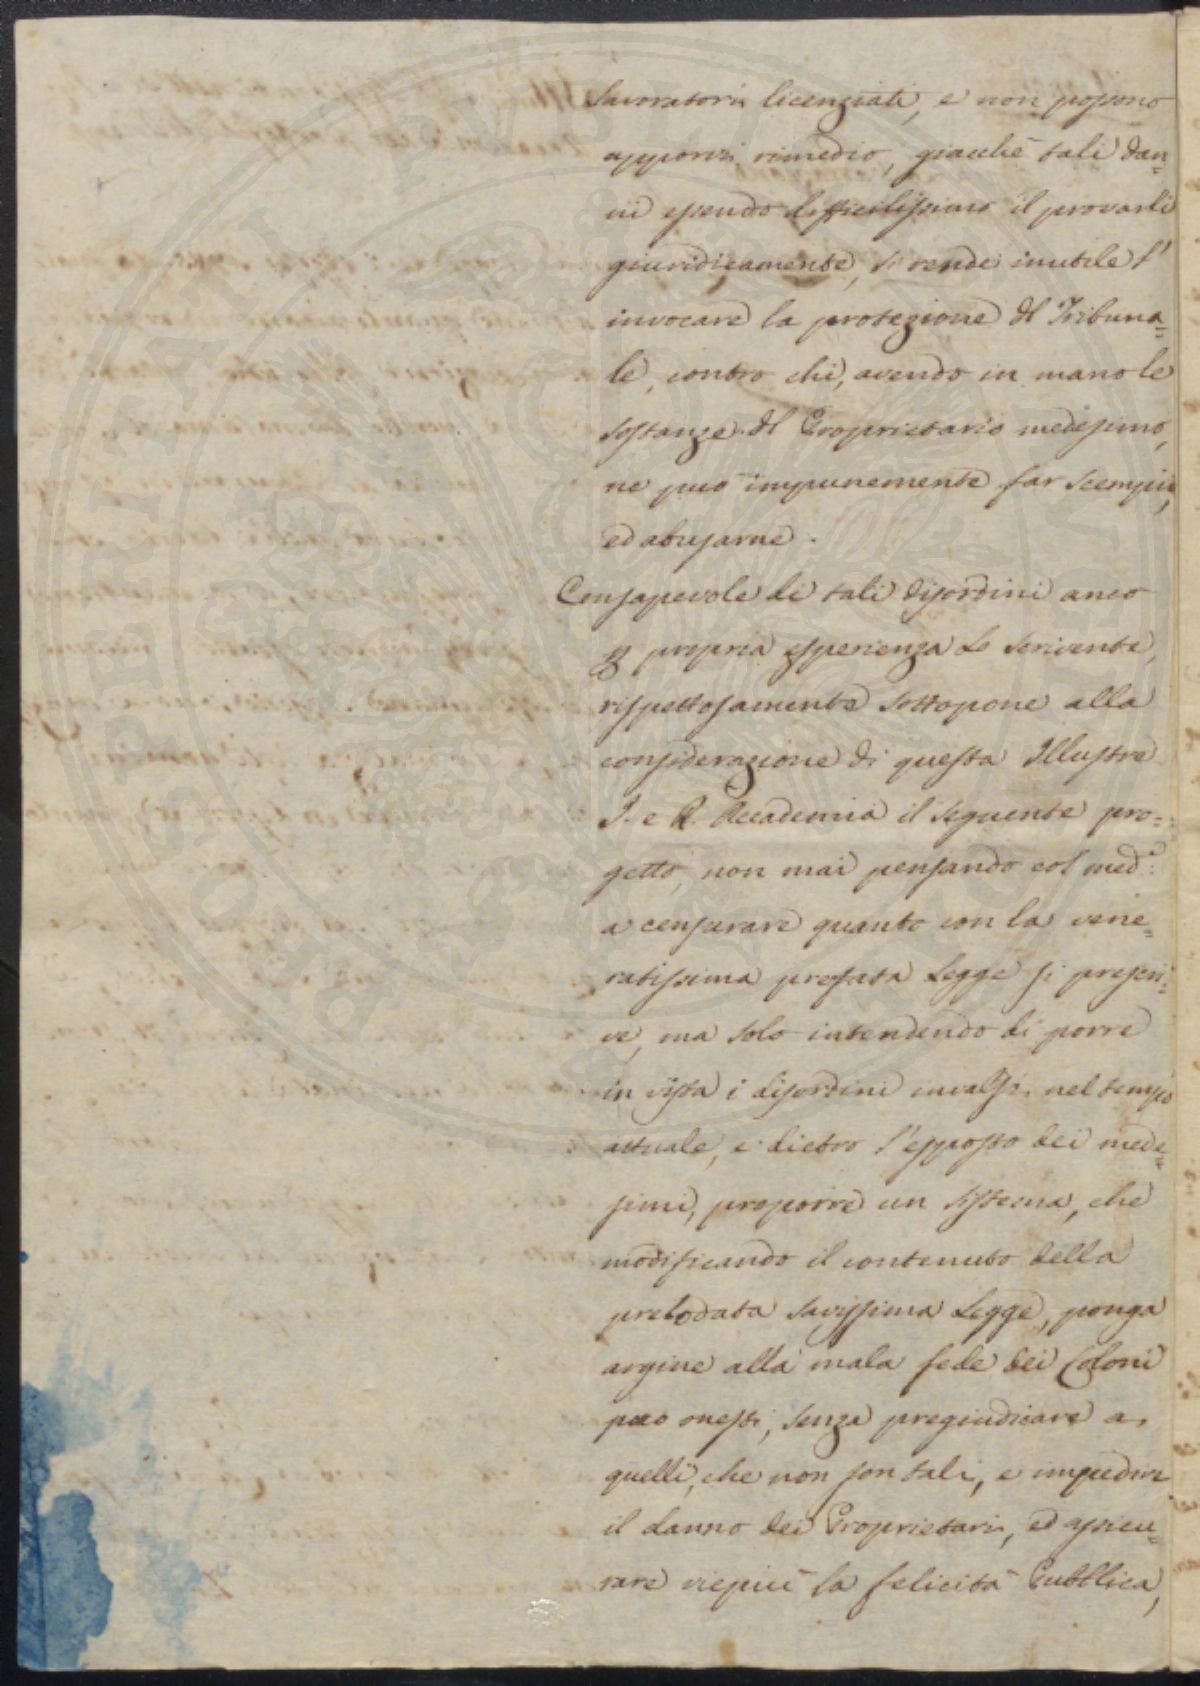 Lavoratori licenziati, e non possono
apporvi rimedio, giacchè tali dan=
ni essendo difficilissimo il provarli
giuridicamente, si rende inutile l'
invocare la protezione dl Tribuna=
le, contro chi, avendo in mano le
sostanze dl Proprietario medesimo,
ne può impunemente far scempio,
ed abusarne.
Consapevole di tali disordini anco
p propria esperienza Lo Scrivente,
rispettosamente sottopone alla
considerazione di questa Illustre
I. e R. Accademia il seguente pro=
getto, non mai pensando col med.o
a censurare quanto con la vene=
ratissima prefata Legge si prescri=
ve, ma solo intendendo di porre
in vista i disordini invalsi nel tempo
attuale, e dietro l'esposto dei mede=
simi, proporre un sistema, che
modificando il contenuto della
prelodata savissima Legge, ponga
argine alla mala fede dei Coloni
poco onesti, senza pregiudicare a
quelli, che non son tali, e impedire
il danno dei Proprietari, ed assicu=
rare viepiù la felicità Pubblica,
PROSPERITATI PUBLICAE